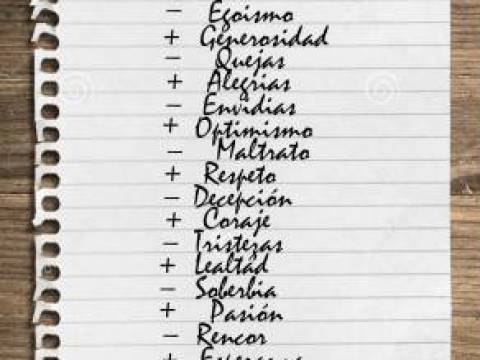 - Egoismo
+ Generosidad
- Quejas
+ Alegrias
- Envidias
+ Optimismo
- Maltrato
+ Respeto
- Decepción
+ Coraje
- Tristezas
+ Lealtad
- Soberbia
+ Pasión
- Rencor
+